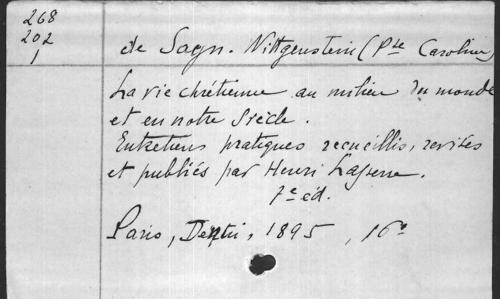 268
202
1
de Sayn-Wittgenstein (Psse Caroline)
La vie chrétienne au milieu du monde
et en notre siècle.
Entretiens pratiques recueillis, revisés
et publiés par Henri Lasserre.
7e éd.
Paris, Dentu, 1895, 16o